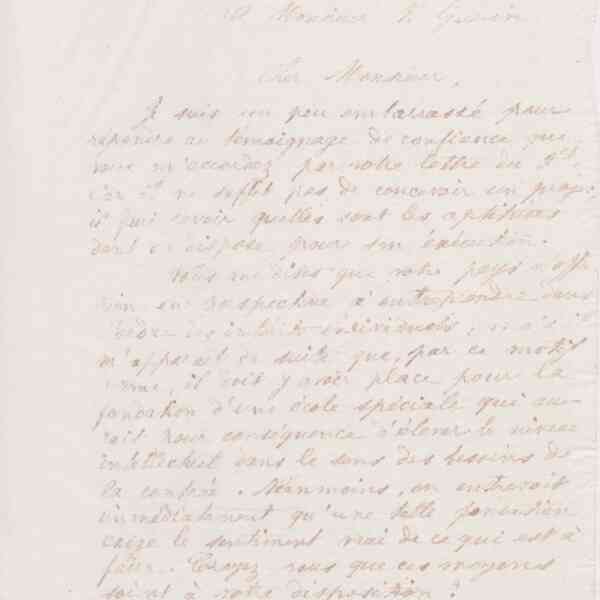 A Monsieur
Cher Monsieur,
Je suis un peu embarrassé pour
répondre au témoignage de confiance que
vous m'accordez par votre lettre du
Car il ne suffit pas de concevoir un projet,
il faut savoir quelles sont les aptitudes
dont on dispose pour son exécution.
Vous me dites que votre pays n'offre
rien en perspective à entreprendre dans
intérêts individuels, mais il
m'apparait de suite que, par ce motif
même, il doit y avoir place pour la
fondation d'une école spéciale qui au-
rait pour conséquence d'élever le niveau
intellectuel dans le sens des besoins de
la contrée. Néanmoins, on entrevoit
immédiatement qu'une telle fondation
exige le sentiment vrai de ce qui est à
faire. Croyez vous que ces moyens
soient à votre disposition?